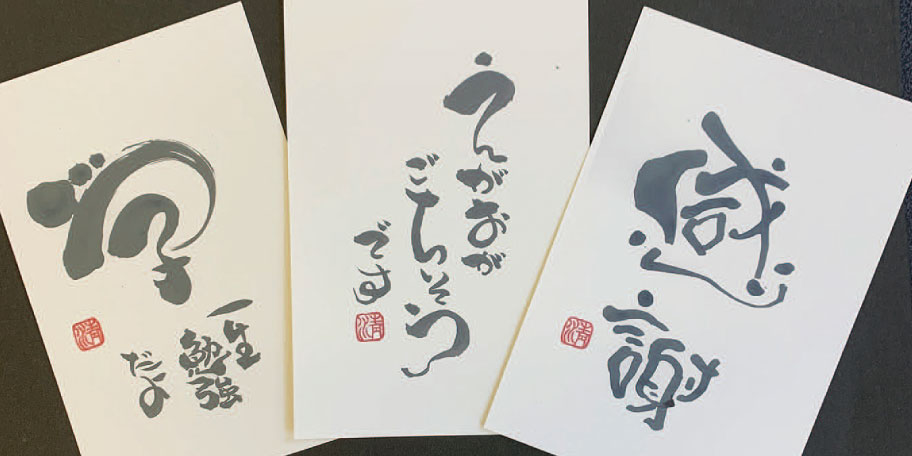 学
一生
勉強
だよ
清
えがおが
ごちそう
です
清
感
謝
清